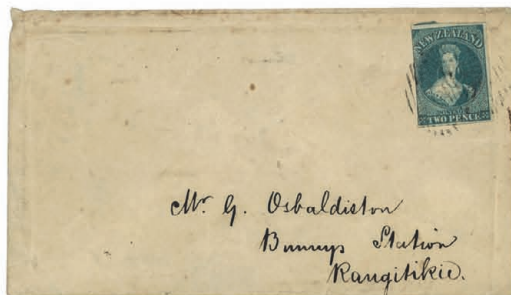 NEW ZEALAND
TWO PENCE
Mr G. Osbaldiston
Bunnys Station
Rangitikie.